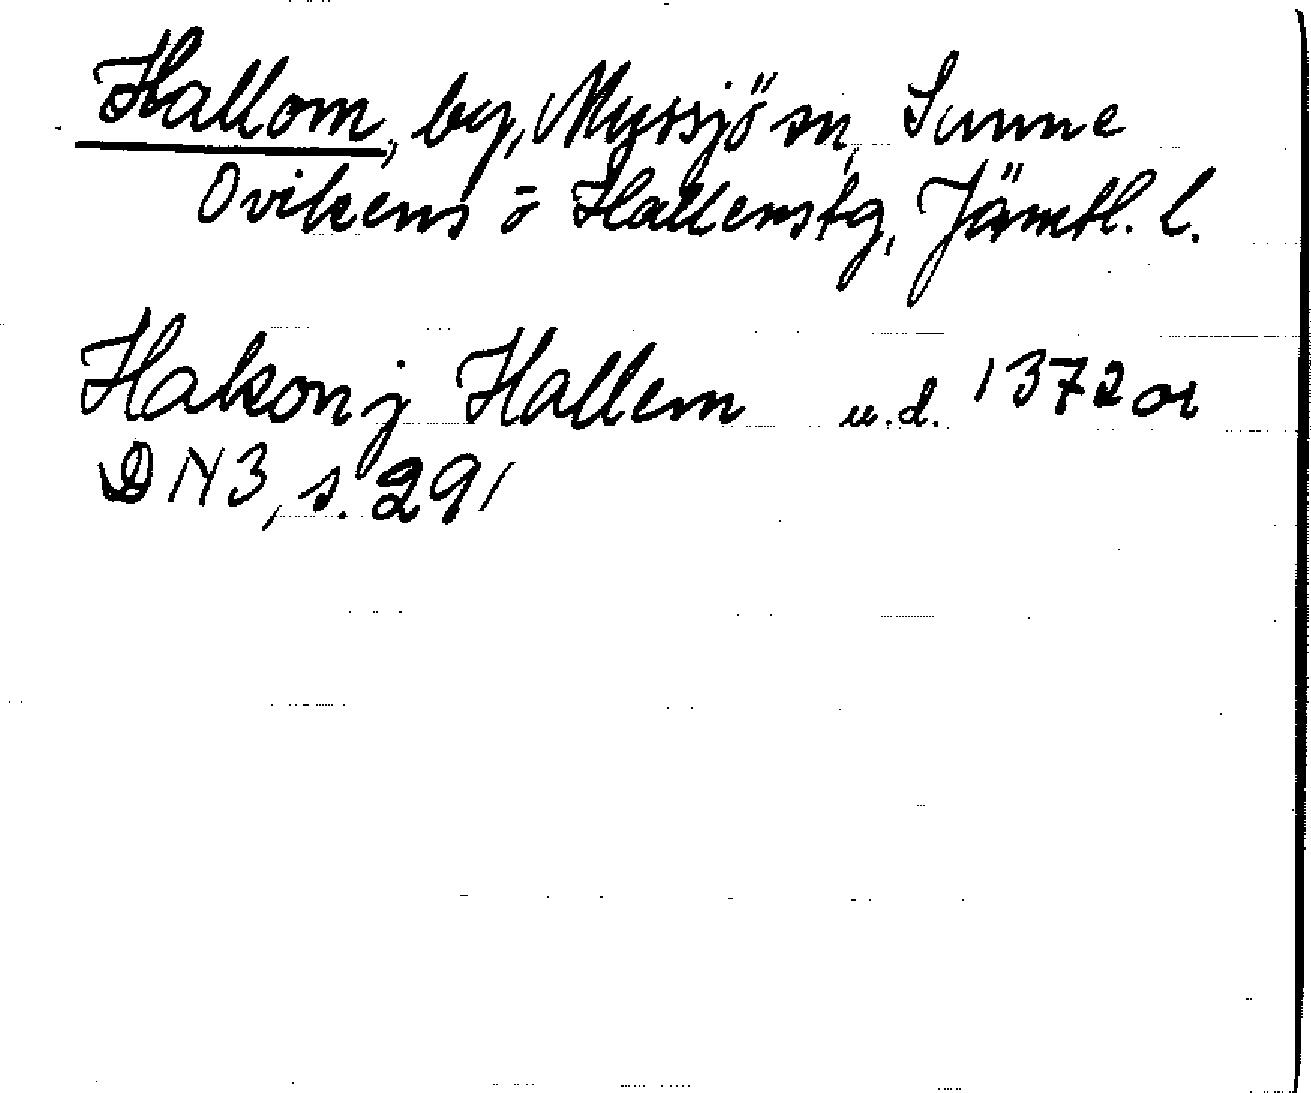 Hallom, by, Myssjö sn, Sunne
Ovikens o Hallenstg, Jämtl. l.
Hakon j Hallem u.d. 1372 or
DN 3, s. 291